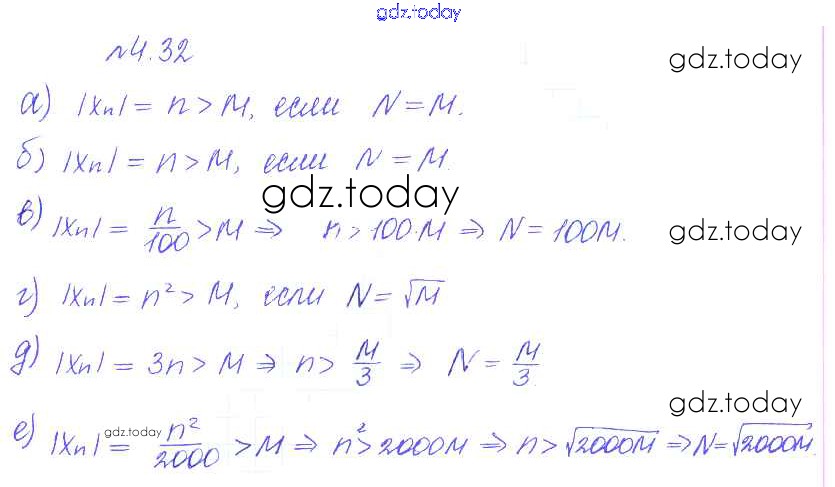 gdz.today
№4.32
gdz.today
а) |xₙ| = n > M, если N = M.
б) |xₙ| = n > M, если N = M.
gdz.today
в) |xₙ| = n/100 > M ⇒ n > 100·M ⇒ N = 100M.
gdz.today
г) |xₙ| = n² > M, если N = √M
д) |xₙ| = 3n > M ⇒ n > M/3 ⇒ N = M/3.
gdz.today
е) |xₙ| = n²/2000 > M ⇒ n² > 2000M ⇒ n > √2000M ⇒ N = √2000M.
gdz.today